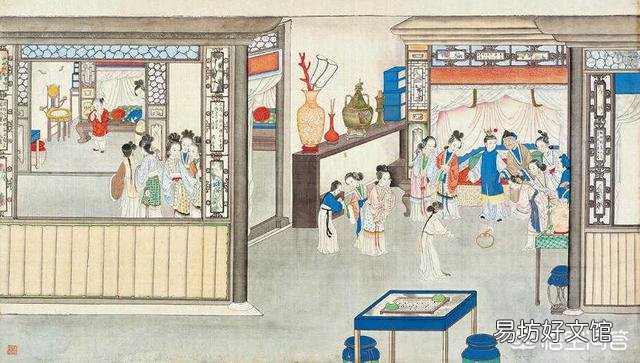 易坊好文馆